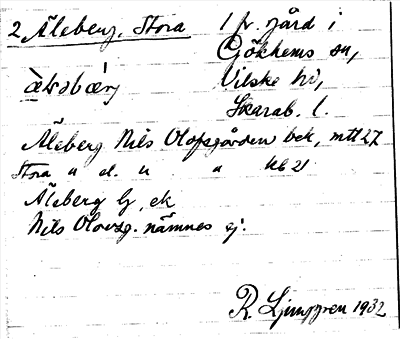 2 Åleberg, Stora
1 fr. gård i
Gökhems sn,
Vilske hd,
Skarab. l.
Åleberg Nils Olofsgården bek, mtl 27
Stora u d. u u Kb 21
Åleberg G, ek
Nils Olovsg. nämnes ej.
R. Ljunggren 1932